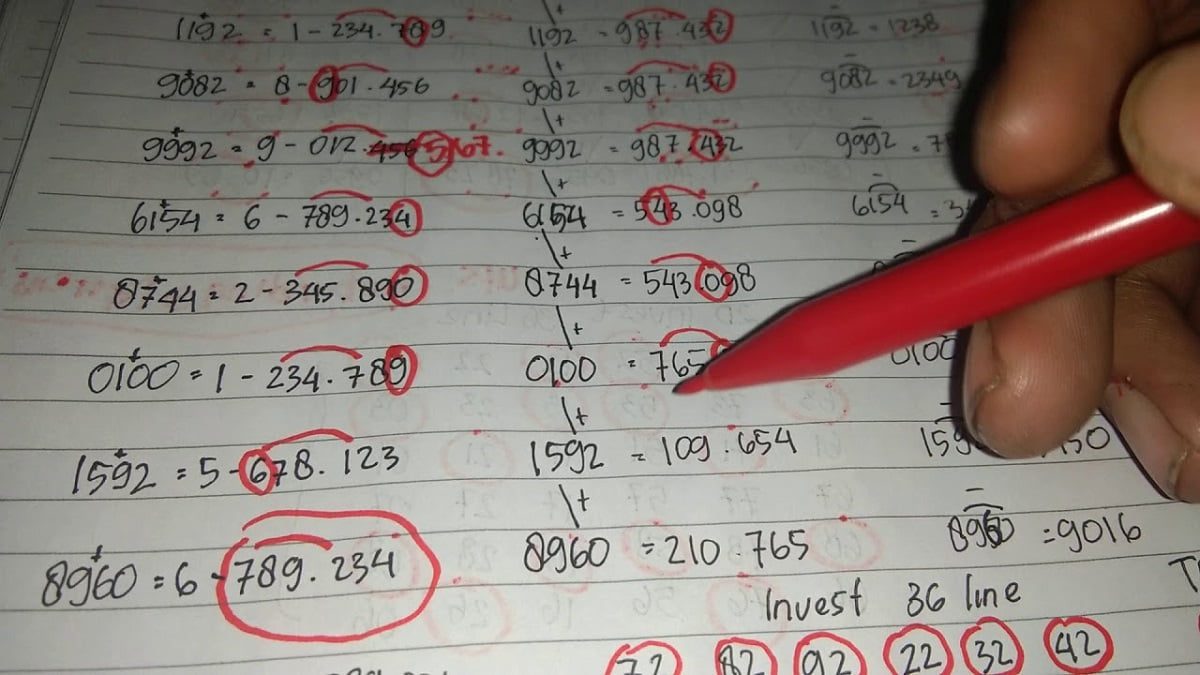 1192 = 1 - 234.789 1192 = 987.432 1192 = 1238
9082 = 8 - 901.456 9082 = 987.432 9082 = 2349
9992 = 9 - 012.456 567. 9992 = 987.432 9992 = 7
6154 = 6 - 789.234 6154 = 543.098 6154 = 3
8744 = 2 - 345.890 8744 = 543.098
0100 = 1 - 234.789 0100 = 765 0100
1592 = 5 - 678.123 1592 = 109.654 159
8960 = 6 - 789.234 8960 = 210.765 8960 = 9016
Invest 36 line
72 82 92 22 32 42